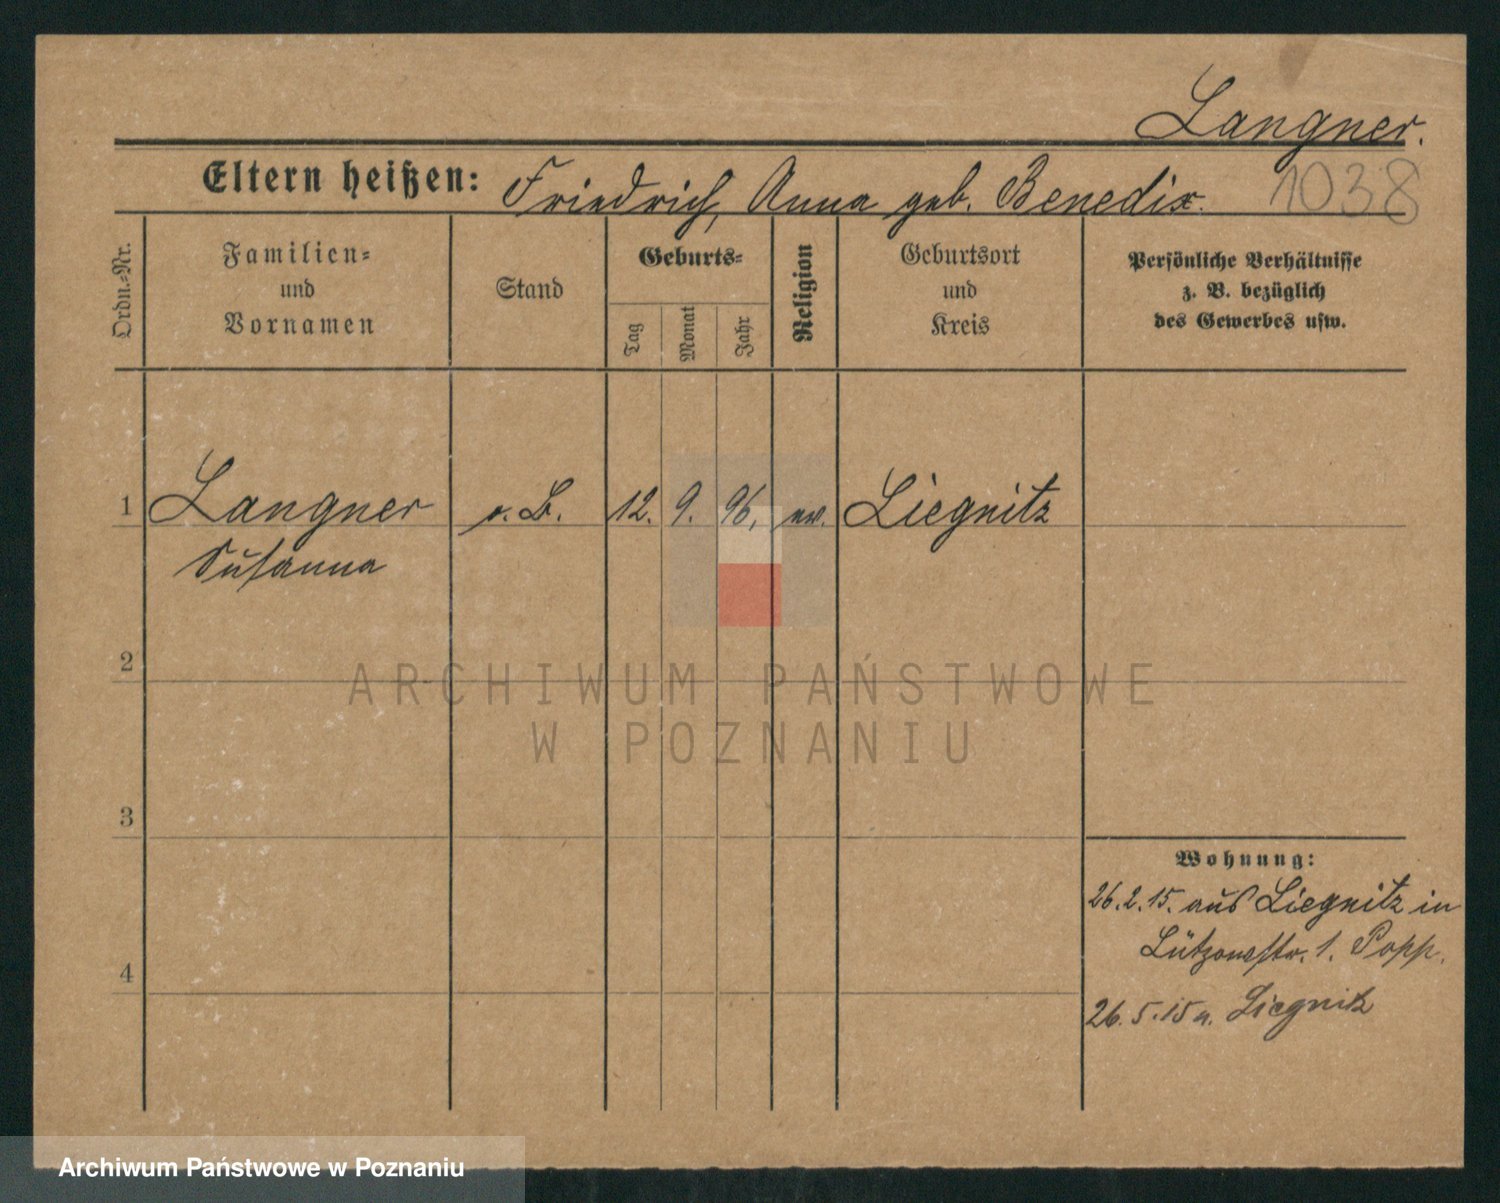 Langner.
Eltern heißen: Friedrich, Anna geb. Benedix.
1038
Ordn.-Nr.
Familien-
und
Vornamen
Stand
Geburts-
Tag
Monat
Jahr
Religion
Geburtsort
und
Kreis
Persönliche Verhältnisse
z. B. bezüglich
des Gewerbes usw.
1 Langner o. B. 12. 9. 96, ev. Liegnitz
Susanna
2
ARCHIWUM PAŃSTWOWE
W POZNANIU
3
Wohnung:
26.2.15. aus Liegnitz in
Lützowstr. 1. Popp.
4
26.5.15 n. Liegnitz
Archiwum Państwowe w Poznaniu